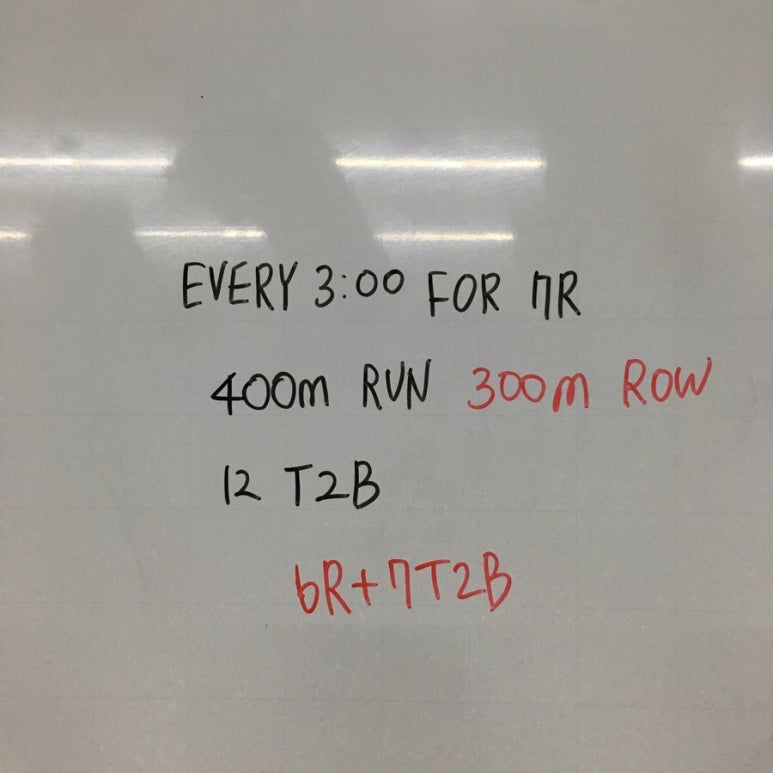 EVERY 3:00 FOR 7R
400m RUN 300m ROW
12 T2B
6R+7T2B